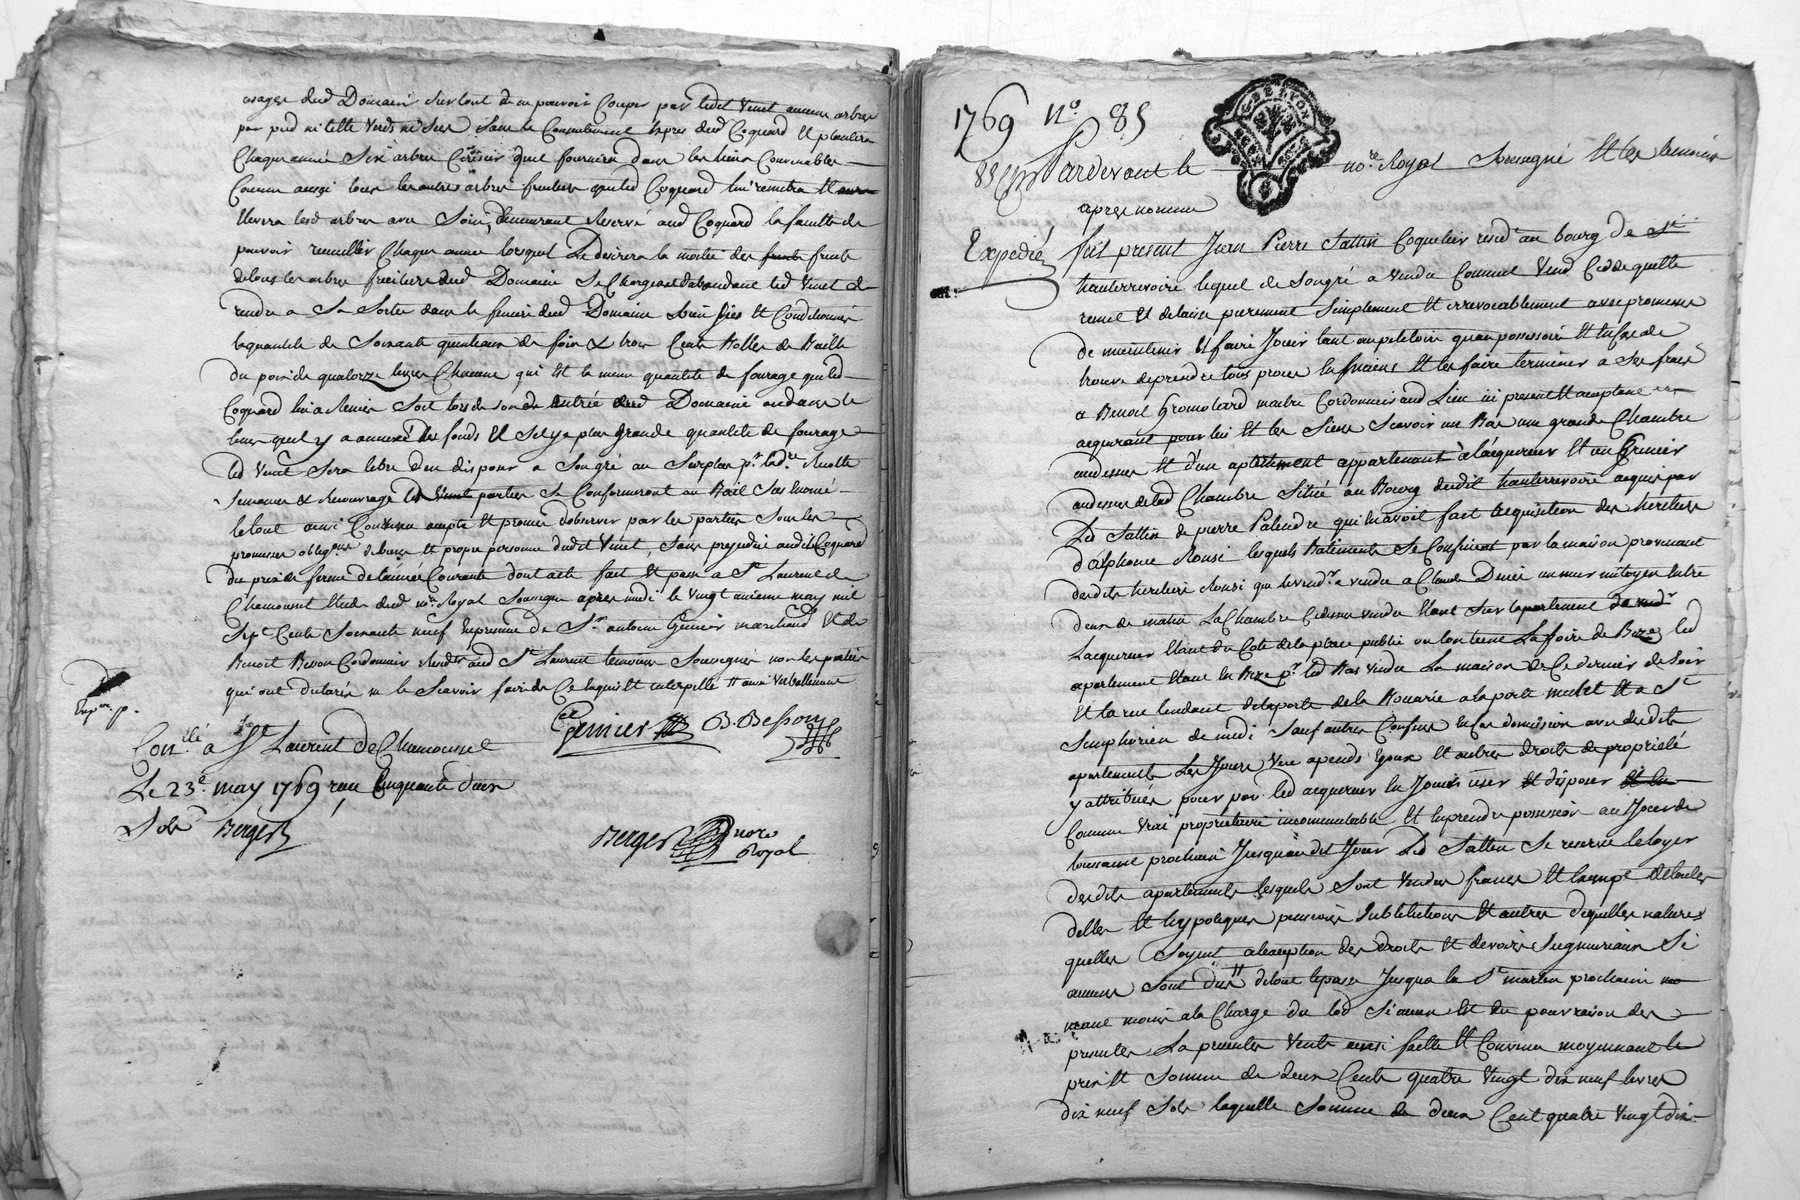 usages dud Domaine surtout de ne pouvoir Couper par ledit Vinet aucun arbres
par pied ni tette verds ni secs sans le Consentement expres dud Coquard et plantera
Chaque année six arbres que fournira dans les lieux Convenables
Comme aussi tous les autres arbres fruitiers que led Coquard lui remettra et
elevera lesd arbres avec Soin, demeurant reservé aud Coquard la faculté de
pouvoir recueillir Chaque année lorsquil le desirera la moitié des fruits
de tous les arbres fruitiers dud Domaine Se Chargeant dabondant led Vinet de
rendre a Sa Sortie dans le feniere dud Domaine bien Secs et Conditionnés
la quantité de Soixante quintaux de foin & trois Cents Bottes de Paille
du poids de quatorze livres Chacune qui est la meme quantité de fourage que led
Coquard lui a remis Soit lors de son entrée dud Domaine ou dans le
tems quil y a amené les fonds et Sil y a plus grande quantité de fourage
led Vinet Sera libre den disposer a Son gré au Surplus pr lad. recolte
Semences & decouvrage les parties Se Conformeront au Bail Sus enoncé
le tout ainsi Convenu accepté et promis dobserver par les parties Sous les
promesses obligons de biens et propre personne dudit Vinet, Sans prejudice audit Coquard
du prix de ferme de lannée Courante dont acte fait et passé a St Laurent de
Chamousset Etude dud nore Royal Soussigné apres midi le vingt unieme may mil
Sept Cents Soixante neuf En presence de Sr antoine Genier marchand et de
Benoit Besson Cordonnier residts aud St Laurent temoins Soussignés non les parties
qui ont declaré ne le Scavoir faire de Ce enquis et interpellé ainsi verballement
Genier B. Besson
Conllé a St Laurent de Chamousset
Le 23e may 1769 reçu Cinquante deux
Sols Berger
Berger nore
Royal
1769 No. 85
Pardevant le nore. Royal Soussigné Et les temoins
apres nommes
Expedié fut present Jean Pierre Sattin Coquetier residt au bourg de
hauterrivoire lequel de Son gré a vendu Comme Vend Cedde quitte
remet et delaisse purement Simplement et irrevocablement avec promesse
de maintenir et faire Jouir tant au petitoire quau possessoire et En Cas de
trouble de prendre tous proces En mains et les faire terminer a Ses frais
a Benoit Gromolard maitre Cordonnier aud Lieu ici present et acceptant
acquerant pour lui et les Siens Scavoir un Bas une grande Chambre
audessus et d'un apartement appartenant à l'acquereur et un Grenier
au dessus de lad Chambre Situé au Bourg dudit hauterrivoire acquis par
Led Sattin de pierre Palendre qui En avoit fait lacquisition des heritiers
d'alphonce Ronsi lesquels Batiments Se Confinent par la maison provenant
desdits heritiers Ronsi que le vendr. a vendu a Claude Durié un mur mitoyen Entre
deux de matin La Chambre Cidessus vendue Etant Sur lapartement
Lacquereur Etant du Coté de la place public ou lon tient La foire de Bize, led
apartement Etant En Bize pr. led Bas vendu La maison de Ce dernier de Soir
Et la rue tendant de la porte de la Bouarie a la porte mulet et a St
Simphorien de midi Sauf autres Confins En Cas domission avec desdits
apartements Les Jours Vue apends Egoux et autres droits de proprieté
y attribués pour par led acquereur En Jouir user et disposer
Comme vrai proprietaire incommutable Et En prendre possession au Jour de
toussaint prochain Jusquau dit Jour Led Sattin Se reserve le loyer
desdits apartements Lesquels Sont vendus francs Et Exempt de toutes
dettes et hypoteques pensions Substitutions et autres dequelles natures
quelles Soyent a lexeption des droits et devoirs Seigneuriaux Si
aucuns Sont dus de tout le passé Jusqua la St martin prochain
neant moins a la Charge du lod Si aucun est du pour raison des
presentes La presente Vente ainsi faitte Et Convenue moyennant le
prix et Somme de deux Cents quatre vingt dix neuf livres
dix neuf Sols laquelle Somme de deux Cent quatre vingt dix